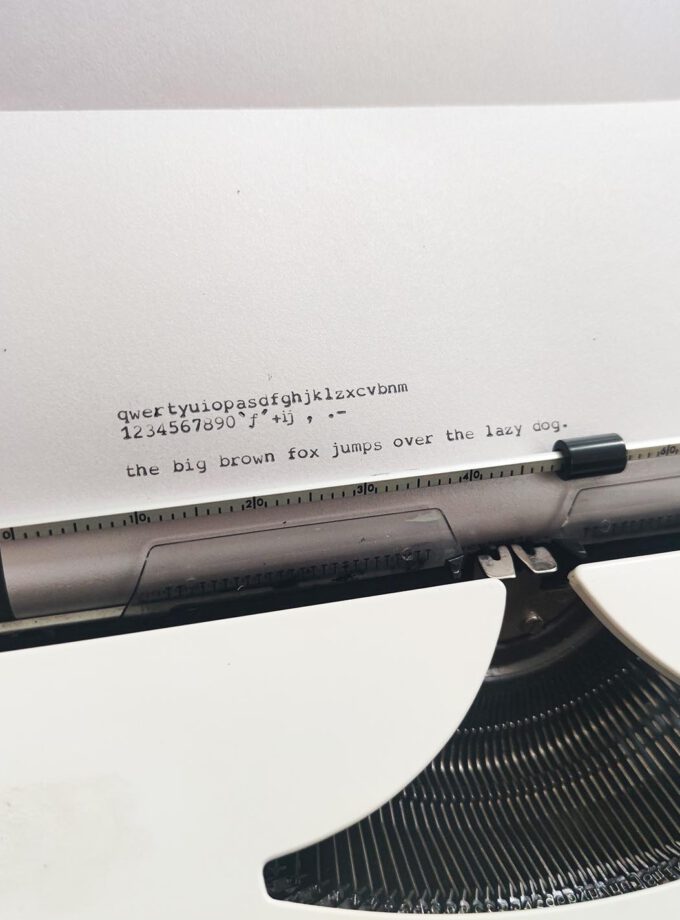 qwertyuiopasdfghjklzxcvbnm
1234567890`ƒ´+ij , .-
the big brown fox jumps over the lazy dog.
0 10 20 30 40 60